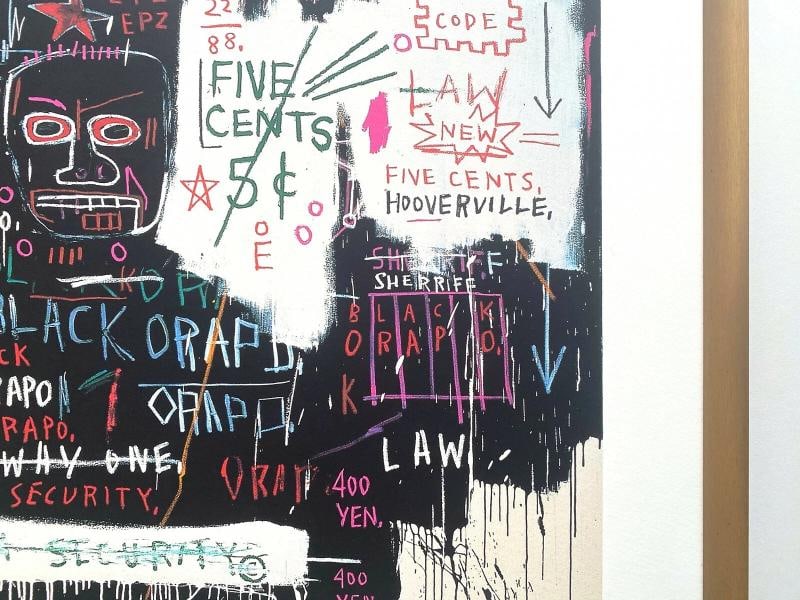 EPZ
22
88.
CODE
FIVE
CENTS
LAW
NEW
5¢
FIVE CENTS,
HOOVERVILLE,
O
E
SHERRIFF
BLACK
ORAPO.
K
BLACK ORAPO.
CK
RAPO
ORAPO.
RAPO.
LAW
WAY ONE,
ORAP
SECURITY,
400
YEN.
SECURITY ©
400
YEN.